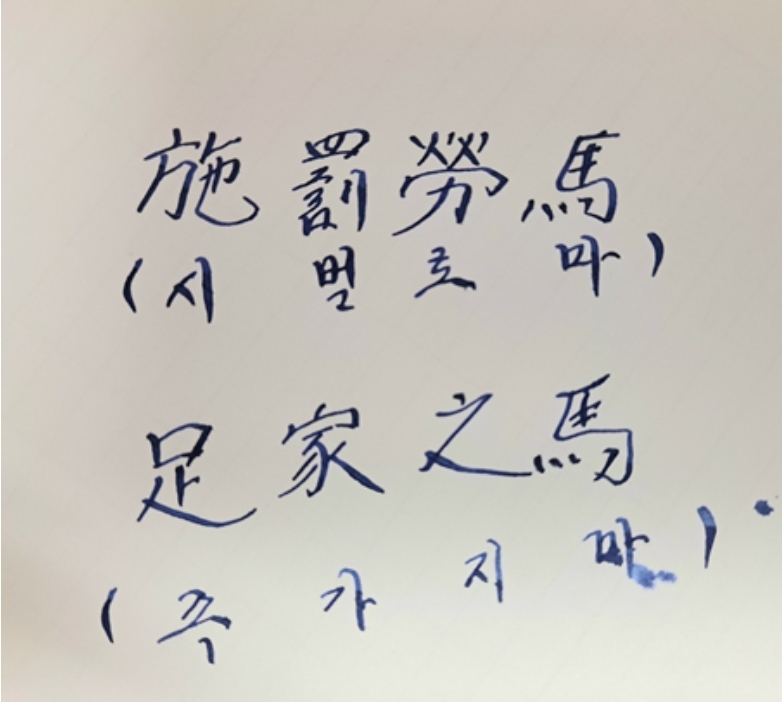 施罰勞馬
(시벌로마)
足家之馬
(족가지마)